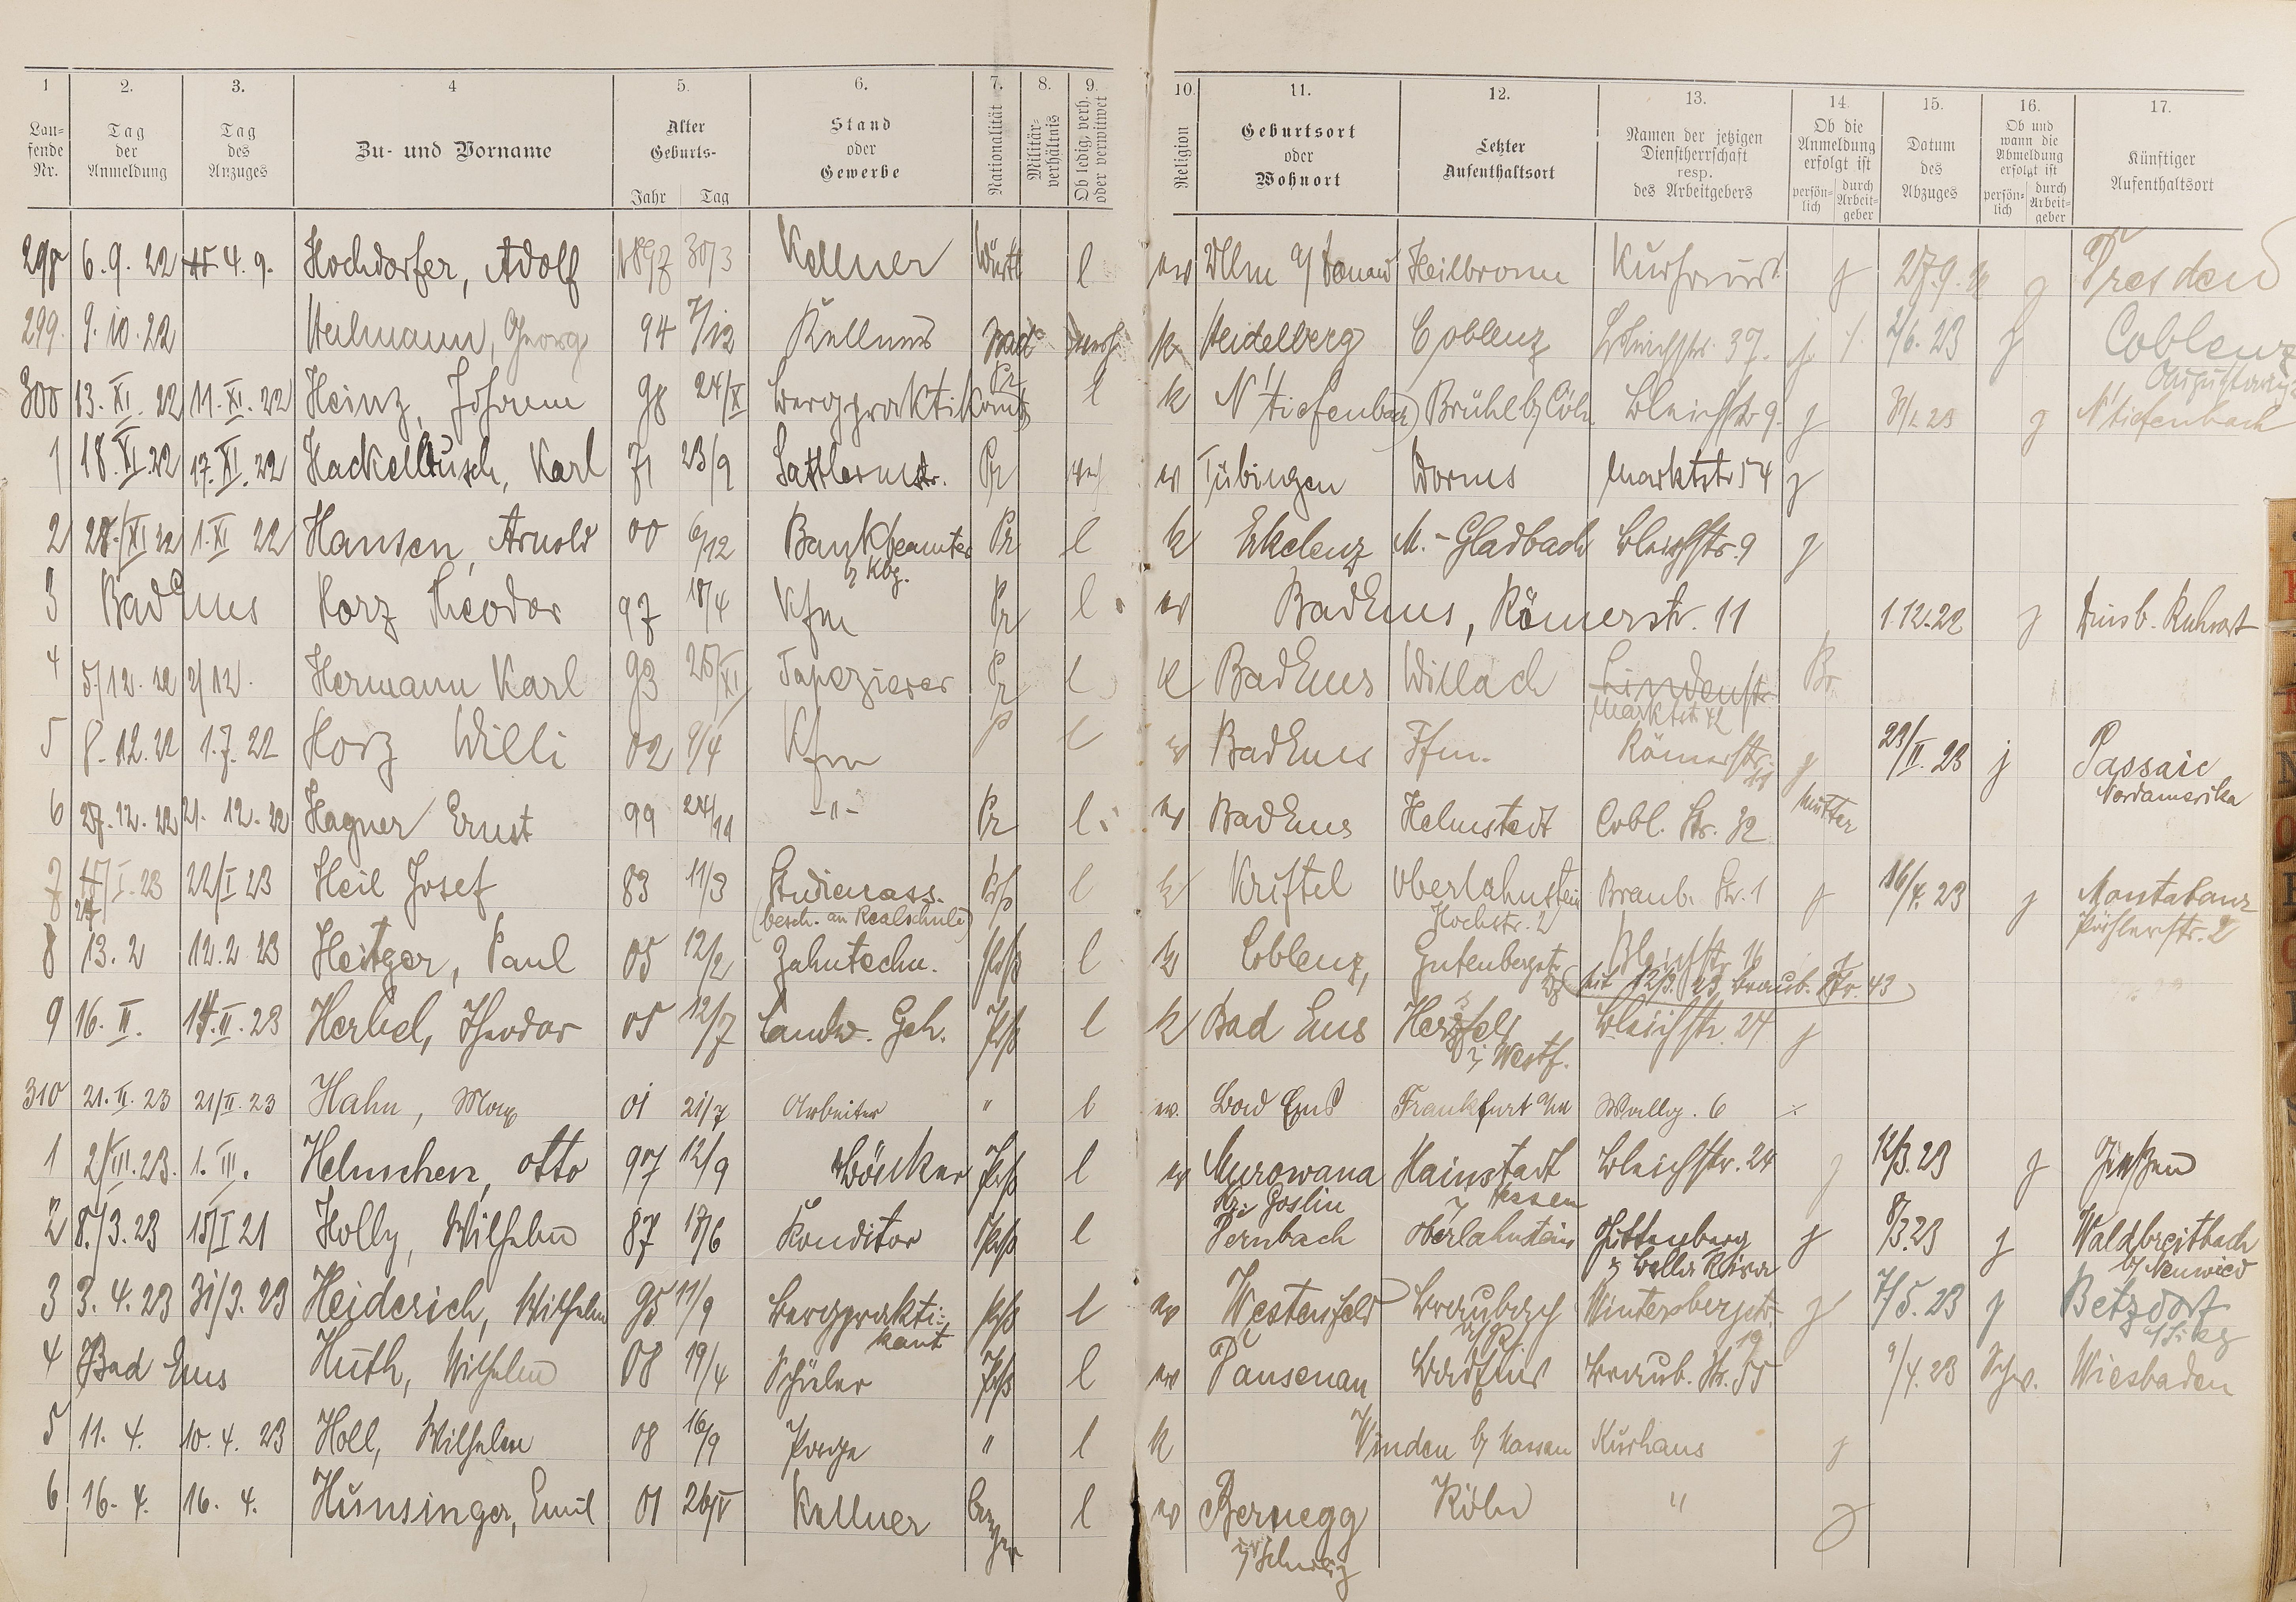 1 2. 3. 4 5. 6. 7. 8. 9. 10. 11. 12. 13. 14. 15. 16. 17.
Lau-fende Nr. Tag der Anmeldung Tag des Anzuges Zu- und Vorname Alter Geburts- Jahr Tag Stand oder Gewerbe Nationalität Militär-verhältnis Ob ledig, verh. oder verwitwet Religion Geburtsort oder Wohnort Letzter Aufenthaltsort Namen der jetzigen Dienstherrschaft resp. des Arbeitgebers Ob die Anmeldung erfolgt ist persön-lich durch Arbeit-geber Datum des Abzuges Ob und wann die Abmeldung erfolgt ist persön-lich durch Arbeit-geber Künftiger Aufenthaltsort
298 6.9.22 4.9. Hochdorfer, Adolf 1897 30/3 Kellner Württ l ev Ulm a/Donau Heilbronn j 27.9. j Dresden
299. 9.10.22 Heilmann, Georg 94 7/12 Kellner Bad k Heidelberg Coblenz 37. j 2/6.23 j Coblenz
300 13.XI.22 11.XI.22 Heinz, Johann 98 24/X Bergpraktikant Pr l k N'tiefenbach Brühl b/Cöln Bleichstr 9. j j N'tiefenbach
1 18.XI.22 17.XI.22 Karl 71 23/9 Sattlermstr. Pr ev Tübingen Worms Marktstr 54 j
2 28./XI 22 1.XI 22 Hansen, Arnold 00 6/12 Bankbeamter Pr l k Erkelenz M.-Gladbach Bleichstr. 9 j
3 Bad Ems Horz Theodor 97 18/4 Kfm Pr l ev Bad Ems, Römerstr. 11 1.12.22 j Duisb. Ruhrort
4 5/12.22 2/12. Hermann Karl 93 25/XI Tapezierer Pr l k Bad Ems Willach Lindenstr Br.
Marktstr 42
5 8.12.22 1.7.22 Horz Willi 02 9/4 Kfm P l ev Bad Ems Ffm. Römerstr. j 23/II.23 j Passaic
Nordamerika
6 27.12.22 21.12.22 Hagner Ernst 99 24/11 -"- Pr l ev Bad Ems Helmstedt Cobl. Str. 32 Mutter
7 I.23 22/I 23 Heil Josef 83 11/3 Studienass. l k Kriftel Oberlahnstein Braub. Str. 1 j 16/4.23 j Montabaur
(besch. an Realschule) Hochstr. 2
8 13.2 12.2 23 Heitger, Paul 05 12/2 Zahntechn. Prß l k Coblenz, Gutenbergstr. Bleichstr. 16 j
Braub. Str. 43
9 16.II. 14.II.23 Herbel, Theodor 05 12/7 Landw. Geh. Prß l k Bad Ems Herzfeld Bleichstr. 24 j
i/Westf.
310 21.II.23 21/II.23 Hahn, Max 01 21/7 Arbeiter " l ev. Bad Ems Frankfurt a/M Wallg. 6
1 2/III.23. 1.III. Helmchen, Otto 97 12/9 Bäcker Prß l ev Murowana Hainstadt Bleichstr. 24 j 12/3.23 j Gießen
Goslin Hessen
2 8./3.23 15/I 21 Holly, Wilhelm 87 18/6 Konditor Prß l Dernbach Oberlahnstein Guttenberg j 8/3.23 j Waldbreitbach
b/Neuwied
3 3.4.23 31/3.23 Heiderich, Wilhelm 95 11/9 Bergprakti- Prß l ev Westerfeld Braubach Wintersbergstr. j 7/5.23 j Betzdorf
kant a/Rh. 19 a/Sieg
4 Bad Ems Huth, Wilhelm 08 19/4 Schüler Prß l ev Dausenau Bad Ems Braub. Str. 55 9/4.23 Schw. Wiesbaden
5 11.4. 10.4.23 Holl, Wilhelm 08 16/9 Page " l k Winden b/Nassau Kurhaus j
6 16.4. 16.4. Hunsinger, Emil 01 26/V Kellner Bayer l ev Bernegg Köln " j
i/Schweiz